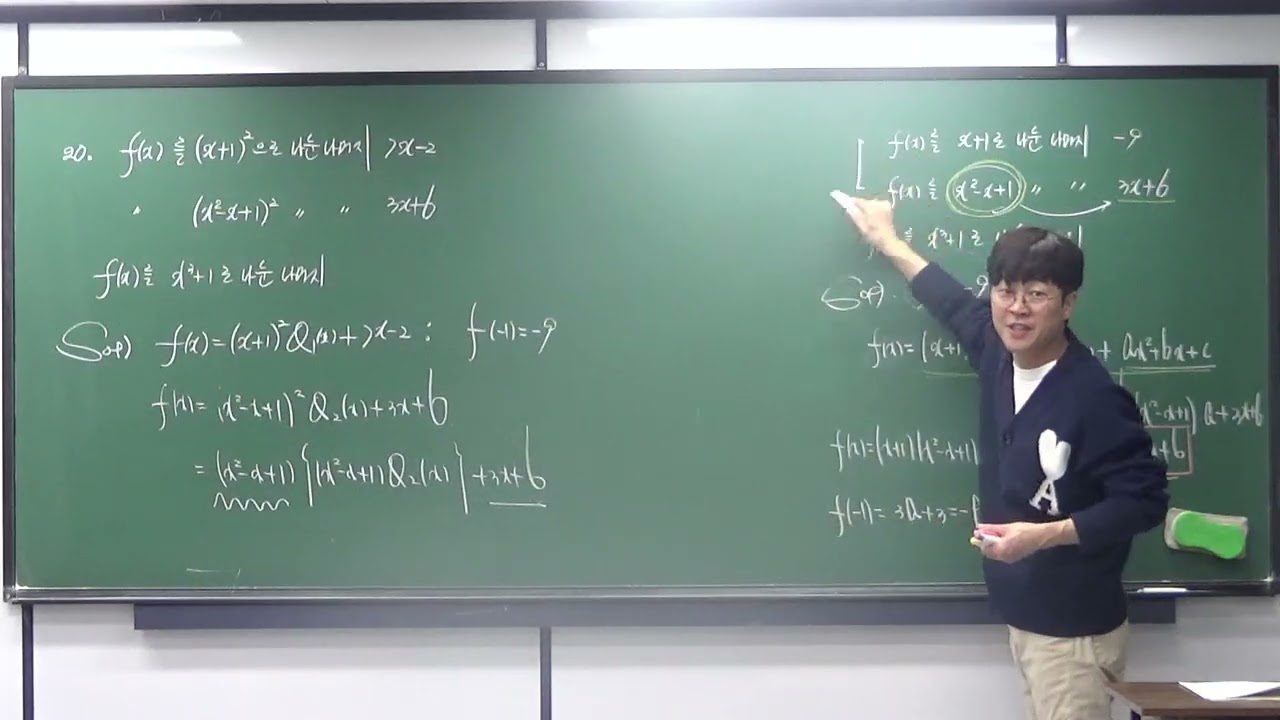 20. f(x)를 (x+1)²으로 나눈 나머지 7x-2
〃 (x²-x+1)² 〃 〃 3x+6
f(x)를 x³+1로 나눈 나머지
Sol) f(x)=(x+1)²Q₁(x)+7x-2 : f(-1)=-9
f(x)=(x²-x+1)²Q₂(x)+3x+6
=(x²-x+1){(x²-x+1)Q₂(x)}+3x+6
f(x)를 x+1로 나눈 나머지 -9
f(x)를 x²-x+1 〃 〃 3x+6
를 x³+1로
Sol) -9
f(x)=(x+1) + ax²+bx+c
(x²-x+1)Q+3x+6
f(x)=(x+1)(x²-x+1) x+6
f(-1)=3a+3=-9
A